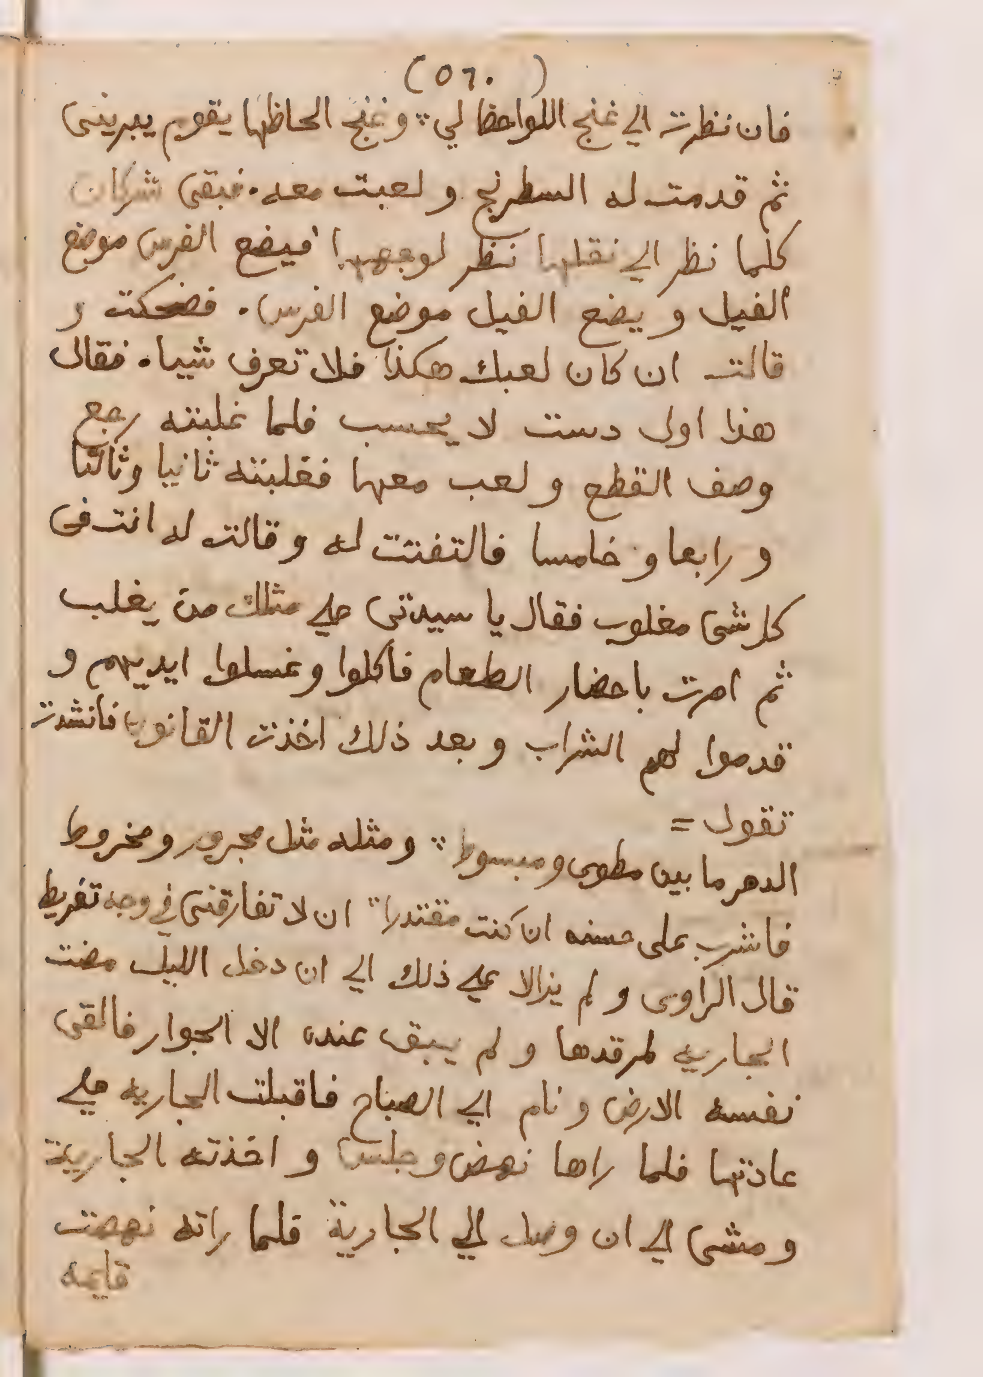 (٥٦٠)
فان نظرت الي غنج اللواحظ لي ∴ وغنج الحاظها يقوم يبريني
ثم قدمت له السطرنج و لعبت معه . فبقي شركان
كلما نظر الي نقلها نظر لوجهها فيضع الفرس موضع
الفيل و يضع الفيل موضع الفرس . فضحكت و
قالت ان كان لعبك هكذا فلا تعرف شيا . فقال
هذا اول دست لا يحسب فلما غلبته رجع
وصف القطع و لعب معها فغلبته ثانيا وثالثا
و رابعا و خامسا فالتفتت له و قالت له انت في
كل شي مغلوب فقال يا سيدتي علي مثلك من يغلب
ثم امرت باحضار الطعام فأكلوا وغسلوا ايديهم و
قدموا لهم الشراب و بعد ذلك اخذت القانون فانشدت
تقول =
الدهر ما بين مطوي و مبسوط ∴ و مثله مثل مجرور و مخروط
فاشرب علي حسنه ان كنت مقتدرا ∴ ان لا تفارقني في وجه تفريط
قال الراوي و لم يزالا علي ذلك الي ان دخل الليل مضت
الجاريه لمرقدها و لم يبق عنده الا الجوار فالقي
نفسه الارض و نام الي الصباح فاقبلت الجاريه علي
عادتها فلما راها نهض و جلس و اخذته الجارية
و مشي الي ان وصل الي الجارية فلما راته نهضت
قايمه